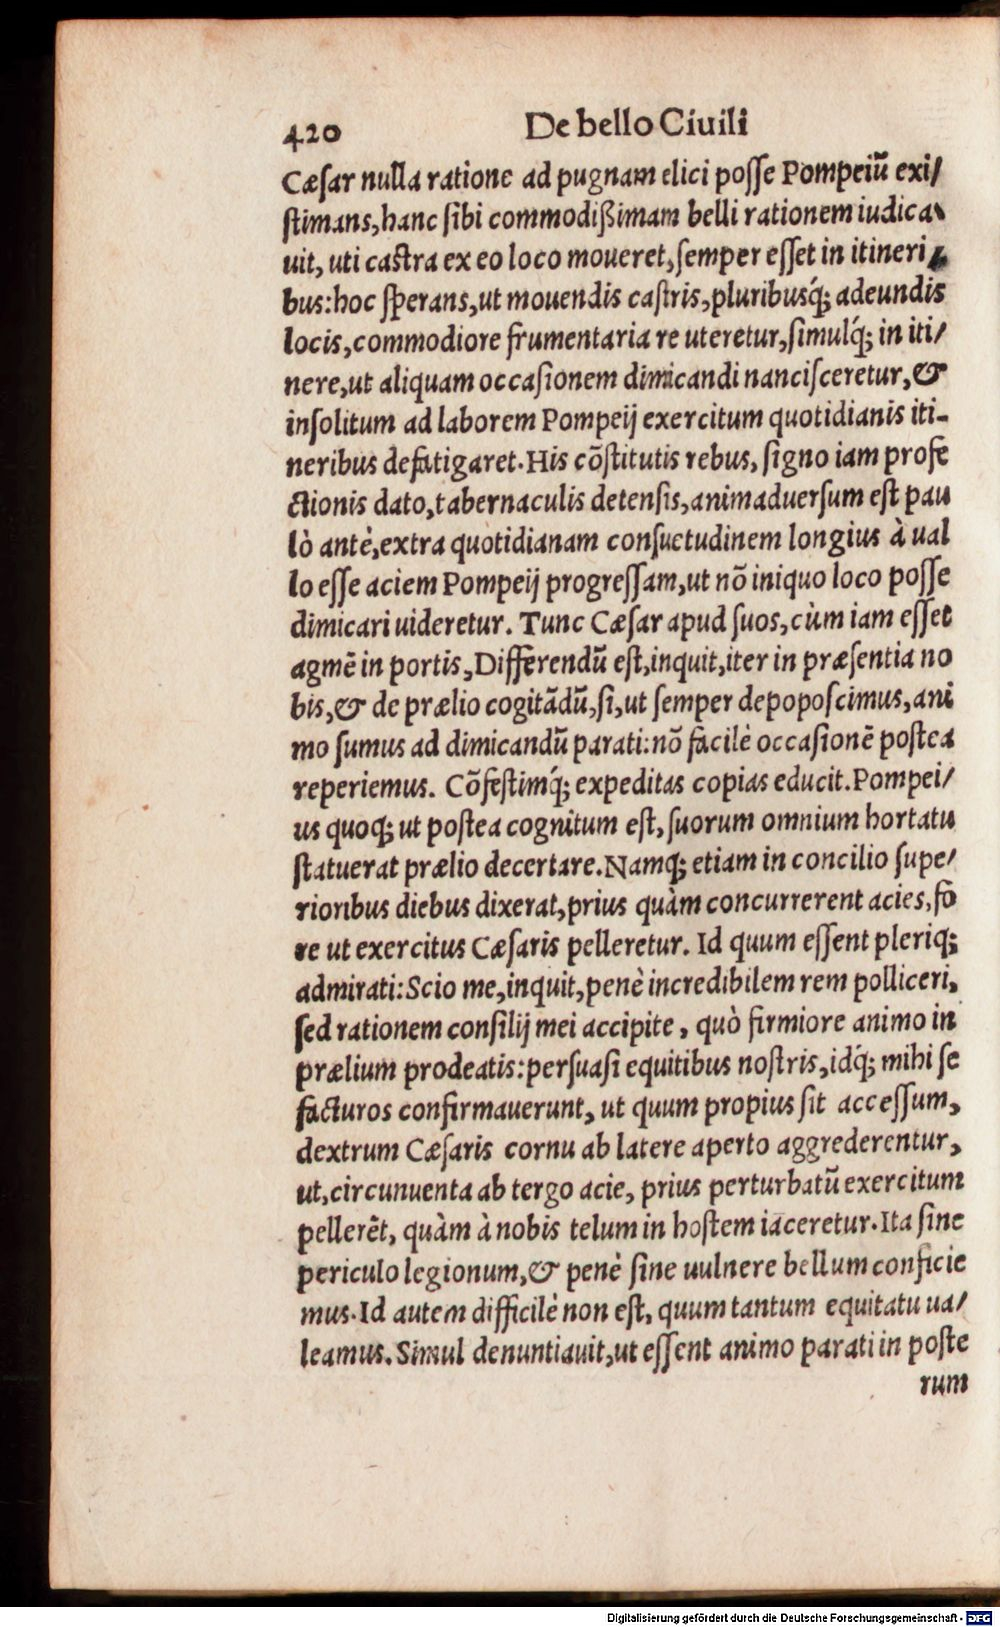 420 De bello Ciuili
Cæſar nulla ratione ad pugnam elici poſſe Pompeiũ exi/
ſtimans, hanc ſibi commodißimam belli rationem iudica
uit, uti caſtra ex eo loco moueret, ſemper eſſet in itineri
bus: hoc ſperans, ut mouendis caſtris, pluribusq́; adeundis
locis, commodiore frumentaria re uteretur, ſimulq́; in iti/
nere, ut aliquam occaſionem dimicandi nanciſceretur, &
inſolitum ad laborem Pompeij exercitum quotidianis iti-
neribus defatigaret. His cõſtitutis rebus, ſigno iam profe
ctionis dato, tabernaculis detenſis, animaduerſum eſt pau
lò antè, extra quotidianam conſuetudinem longius à ual
lo eſſe aciem Pompeij progreſſam, ut nõ iniquo loco poſſe
dimicari uideretur. Tunc Cæſar apud ſuos, cùm iam eſſet
agmẽ in portis, Differendũ eſt, inquit, iter in præſentia no
bis, & de prælio cogitãdũ, ſi, ut ſemper depopoſcimus, ani
mo ſumus ad dimicandũ parati: nõ facilè occaſionẽ poſtea
reperiemus. Cõfeſtimq́; expeditas copias educit. Pompei/
us quoq; ut poſtea cognitum eſt, ſuorum omnium hortatu
ſtatuerat prælio decertare. Namq; etiam in concilio ſupe/
rioribus diebus dixerat, prius quàm concurrerent acies, fo
re ut exercitus Cæſaris pelleretur. Id quum eſſent pleriq;
admirati: Scio me, inquit, penè incredibilem rem polliceri,
ſed rationem conſilij mei accipite, quò firmiore animo in
prælium prodeatis: perſuaſi equitibus noſtris, idq́; mihi ſe
facturos confirmauerunt, ut quum propius ſit acceſſum,
dextrum Cæſaris cornu ab latere aperto aggrederentur,
ut, circunuenta ab tergo acie, prius perturbatũ exercitum
pellerẽt, quàm à nobis telum in hoſtem iaceretur. Ita ſine
periculo legionum, & penè ſine uulnere bellum conficie
mus. Id autem difficilè non eſt, quum tantum equitatu ua/
leamus. Simul denuntiauit, ut eſſent animo parati in poſte
rum
Digitalisierung gefördert durch die Deutsche Forschungsgemeinschaft - DFG